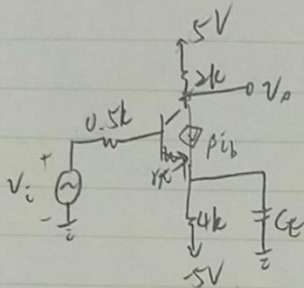 5V
2k
Vo
0.5k
βib
rπ
+
Vi
-
4k
CE
-5V